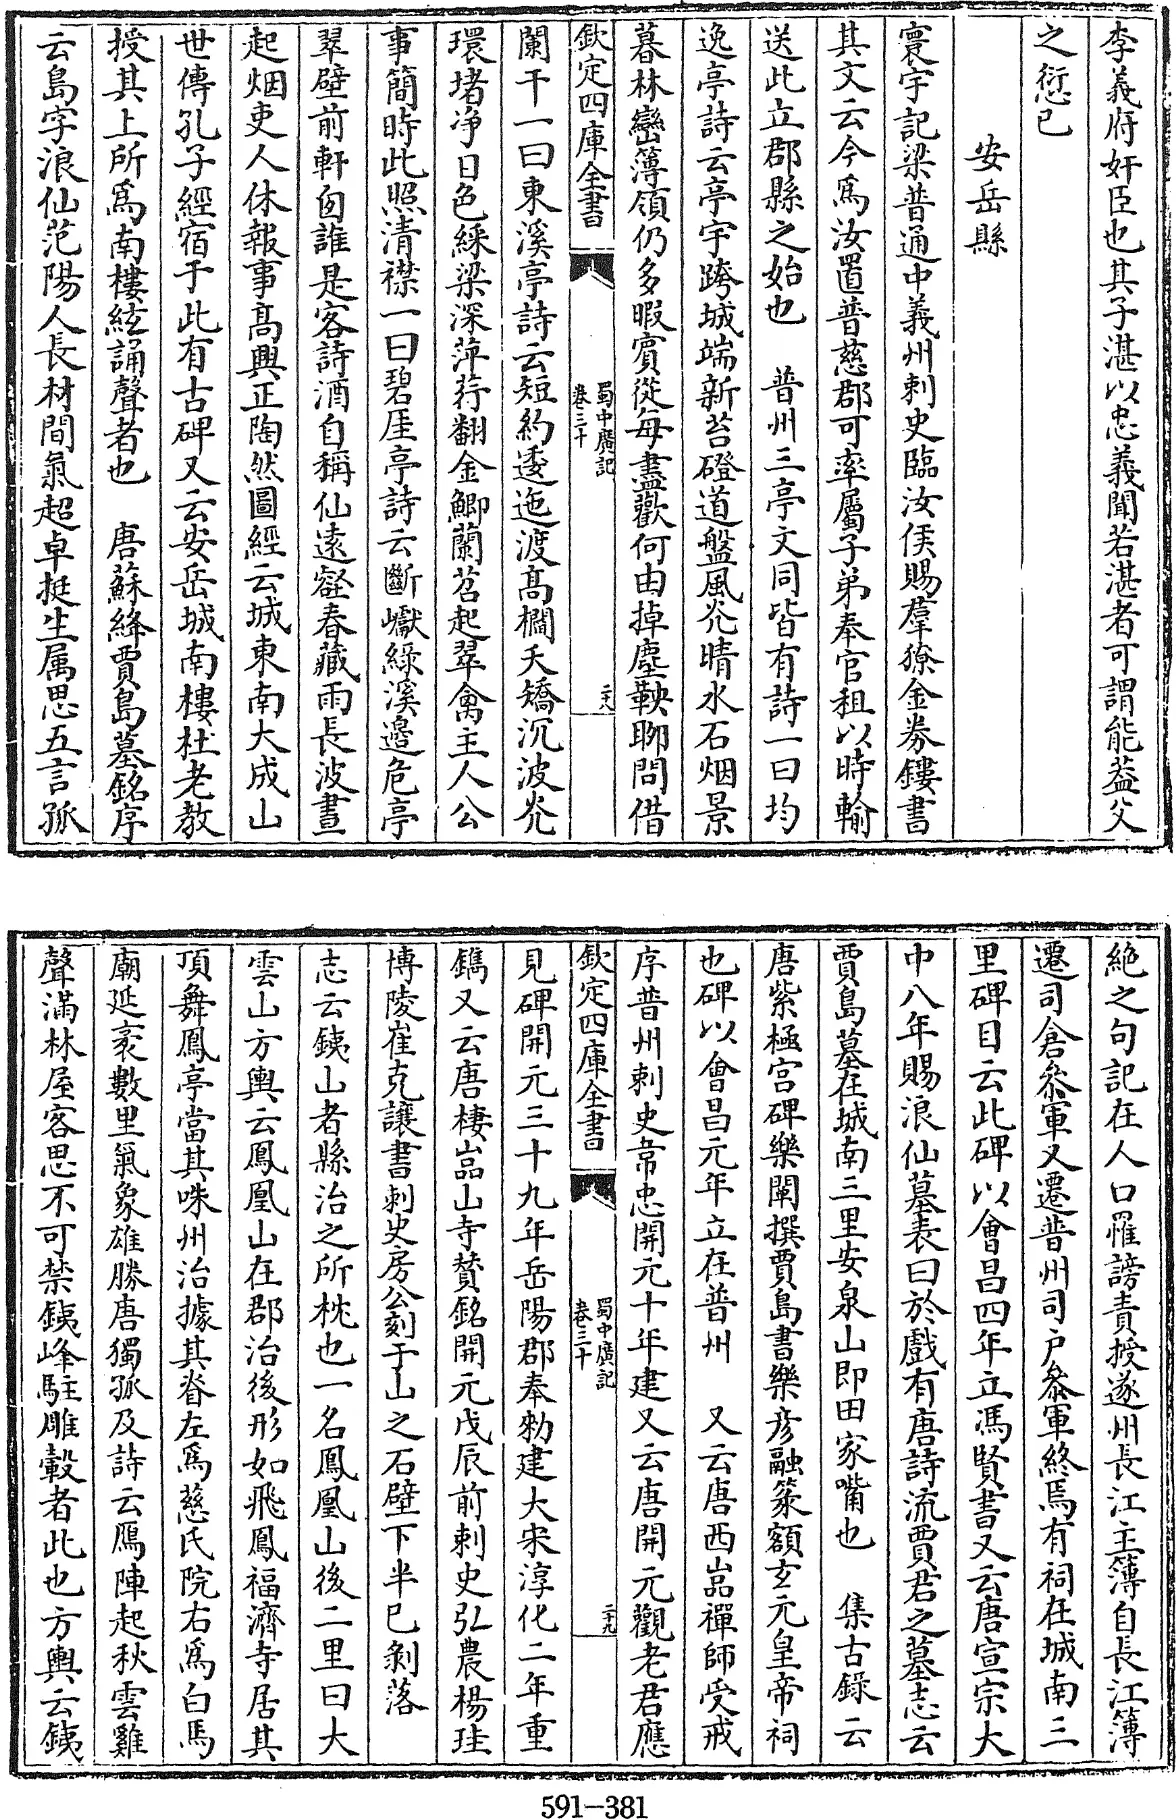 李義府奸臣也其子湛以忠義聞若湛者可謂能葢父
之愆已
安岳縣
寰宇記梁普通中義州刺史臨汝侯賜羣獠金券鏤書
其文云今爲汝置普慈郡可率屬子弟奉官租以時輸
送此立郡縣之始也　普州三亭文同皆有詩一曰均
逸亭詩云亭宇跨城端新苔磴道盤風光晴水石烟景
暮林巒簿領仍多暇賓從每盡歡何由掉塵鞅聊問借
欽定四庫全書
蜀中廣記
卷三十
二十八
闌干一曰東溪亭詩云短約逶迤渡高橺夭矯沉波光
環堵净日色綵梁深萍荇翻金鯽蘭苕起翠禽主人公
事簡時此照清襟一曰碧厓亭詩云斷巘緑溪邉危亭
翠壁前軒囱誰是客詩酒自稱仙逺壑春藏雨長波晝
起烟吏人休報事髙興正陶然圖經云城東南大成山
世傳孔子經宿于此有古碑又云安岳城南樓杜老教
授其上所爲南樓絃誦聲者也　唐蘇絳賈島墓銘序
云島字浪仙范陽人長材間氣超卓挺生属思五言孤
絶之句記在人口罹謗責授遂州長江主簿自長江簿
遷司倉叅軍又遷普州司户叅軍終焉有祠在城南三
里碑目云此碑以會昌四年立馮賢書又云唐宣宗大
中八年賜浪仙墓表曰於戲有唐詩流賈君之墓志云
賈島墓在城南三里安泉山即田家嘴也　集古錄云
唐紫極宫碑樂闡撰賈島書樂彦融篆額玄元皇帝祠
也碑以會昌元年立在普州　又云唐西嵓禪師受戒
序普州刺史韋忠開元十年建又云唐開元觀老君應
欽定四庫全書
蜀中廣記
卷三十
二十九
見碑開元三十九年岳陽郡奉勑建大宋淳化二年重
鐫又云唐棲嵓山寺賛銘開元戊辰前刺史弘農楊珪
博陵崔克讓書刺史房公刻于山之石壁下半已剝落
志云鐵山者縣治之所枕也一名鳳凰山後二里曰大
雲山方輿云鳳凰山在郡治後形如飛鳳福濟寺居其
頂舞鳳亭當其咮州治據其脊左爲慈氏院右爲白馬
廟延袤數里氣象雄勝唐獨孤及詩云鴈陣起秋雲雞
聲滿林屋客思不可禁鐵峰駐雕轂者此也方輿云鐵
591-381